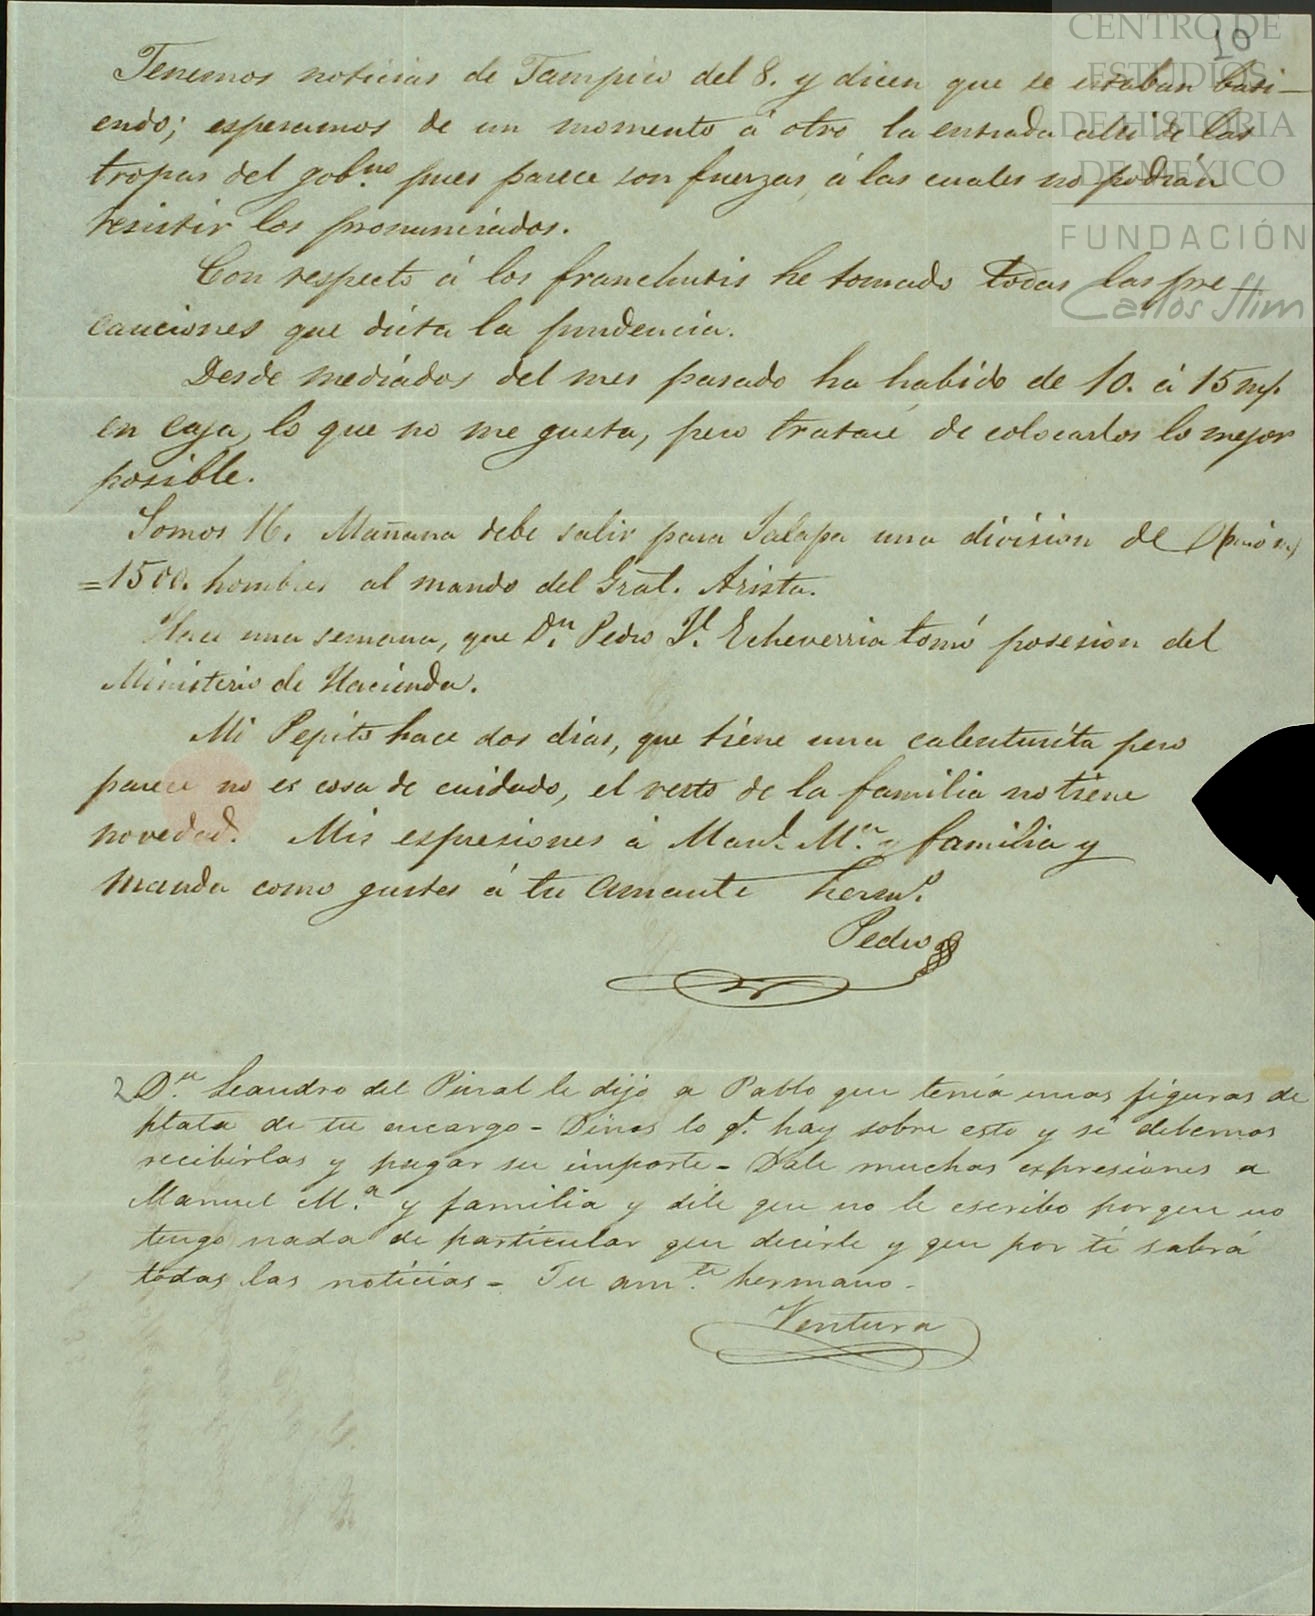 CENTRO DE
ESTUDIOS
DE HISTORIA
DE MÉXICO
FUNDACIÓN
Carlos Slim
10
Tenemos noticias de Tampico del 8. y dicen que se estaban bati-
endo; esperamos de un momento á otro la entrada alli de las
tropas del gob.no pues parece son fuerzas, á las cuales no podrán
resistir los pronunciados.
Con respecto á los franchutis he tomado todas las pre-
cauciones que dicta la prudencia.
Desde mediados del mes pasado ha habido de 10. á 15 mp.
en caja, lo que no me gusta, pero trataré de colocarlos lo mejor
posible.
Somos 16. Mañana debe salir para Jalapa una division de
=1500. hombres al mando del Gral. Arista.
Hace una semana, que D.n Pedro J. Echeverria tomó posesion del
Ministerio de Hacienda.
Mi Pepito hace dos dias, que tiene una calenturita pero
parece no es cosa de cuidado, el resto de la familia no tiene
novedad. Mis expresiones á Man.l M.a y familia y
manda como gustes á tu amante herm.o
Pedro
2 D.n Leandro del Pinal le dijo a Pablo que tenía unas figuras de
plata de tu encargo - Dinos lo q.e hay sobre esto y si debemos
recibirlas y pagar su importe - Dale muchas expresiones a
Manuel M.a y familia y dile que no le escribo porque no
tengo nada de particular que decirle y que por ti sabrá
todas las noticias - Tu am.te hermano -
Ventura